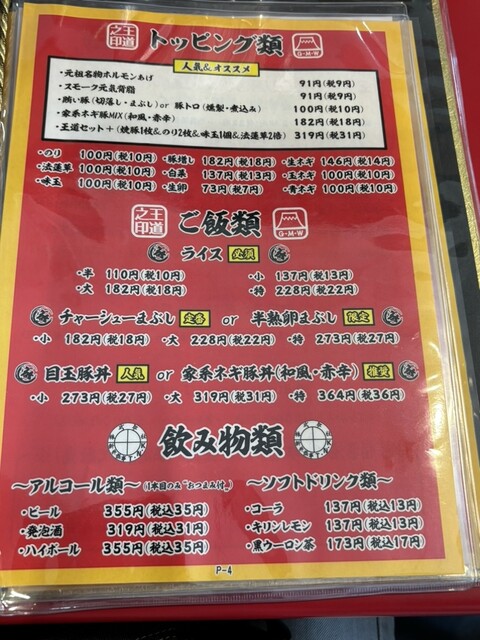 王道之印 トッピング類 G-M-W
人気&オススメ
・元祖名物ホルモンあげ 91円(税9円)
・スモーク元氣背脂 91円(税9円)
・賄い豚(切落し・まぶし)or 豚トロ(燻製・煮込み) 100円(税10円)
・家系ネギ豚MIX(和風・赤辛) 182円(税18円)
・王道セット+(焼豚1枚&のり2枚&味玉1個&法蓮草2倍) 319円(税31円)
・のり 100円(税10円) ・豚増し 182円(税18円) ・生ネギ 146円(税14円)
・法蓮草 100円(税10円) ・白菜 137円(税13円) ・玉ネギ 100円(税10円)
・味玉 100円(税10円) ・生卵 73円(税7円) ・青ネギ 100円(税10円)
王道之印 ご飯類 G-M-W
ライス 必須
・半 110円(税10円) ・小 137円(税13円)
・大 182円(税18円) ・特 228円(税22円)
チャーシューまぶし 定番 or 半熟卵まぶし 限定
・小 182円(税18円) ・大 228円(税22円) ・特 273円(税27円)
目玉豚丼 人気 or 家系ネギ豚丼(和風・赤辛) 推奨
・小 273円(税27円) ・大 319円(税31円) ・特 364円(税36円)
飲み物類
〜アルコール類〜(1本目のみ"おつまみ付") 〜ソフトドリンク類〜
・ビール 355円(税込35円) ・コーラ 137円(税込13円)
・発泡酒 319円(税込31円) ・キリンレモン 137円(税込13円)
・ハイボール 355円(税込35円) ・黒ウーロン茶 173円(税込17円)
P-4